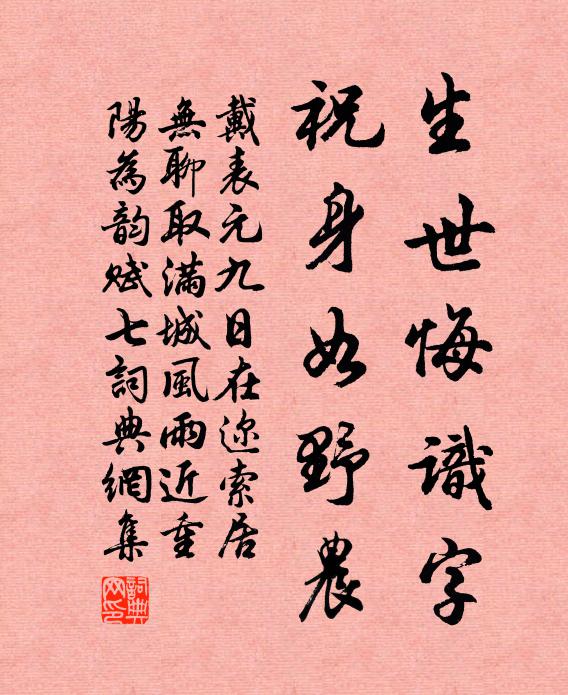 生世悔識字
祝身如野農
戴表元九日在迩索居
無聊取滿城風雨近重
陽為韵賦七詞典網集
詞典網印